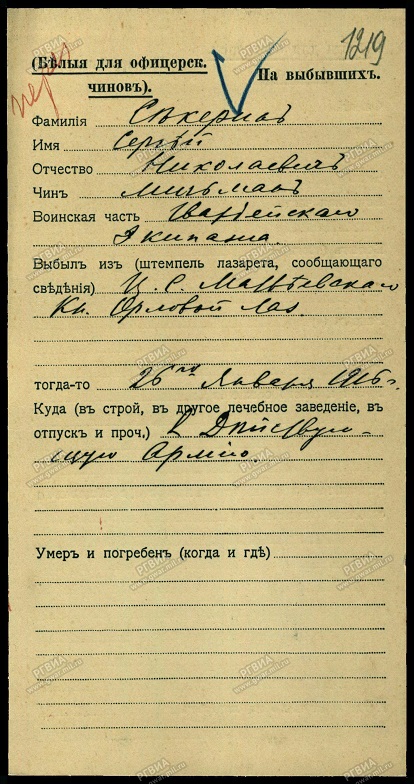 1219
(Бѣлыя для офицерск. чиновъ).
На выбывшихъ.
Фамилія
Имя Сергѣй
Отчество Николаевичъ
Чинъ Мичманъ
Воинская часть Гвардейскаго
Экипажа.
Выбылъ изъ (штемпель лазарета, сообщающаго
свѣдѣнія) Ц. С.
Кн. Орловой Лаз.
тогда-то 26го Января 1916 г.
Куда (въ строй, въ другое лечебное заведеніе, въ
отпускъ и проч.) въ Дѣйствую-
щую Армію.
Умеръ и погребенъ (когда и гдѣ)
РГВИА